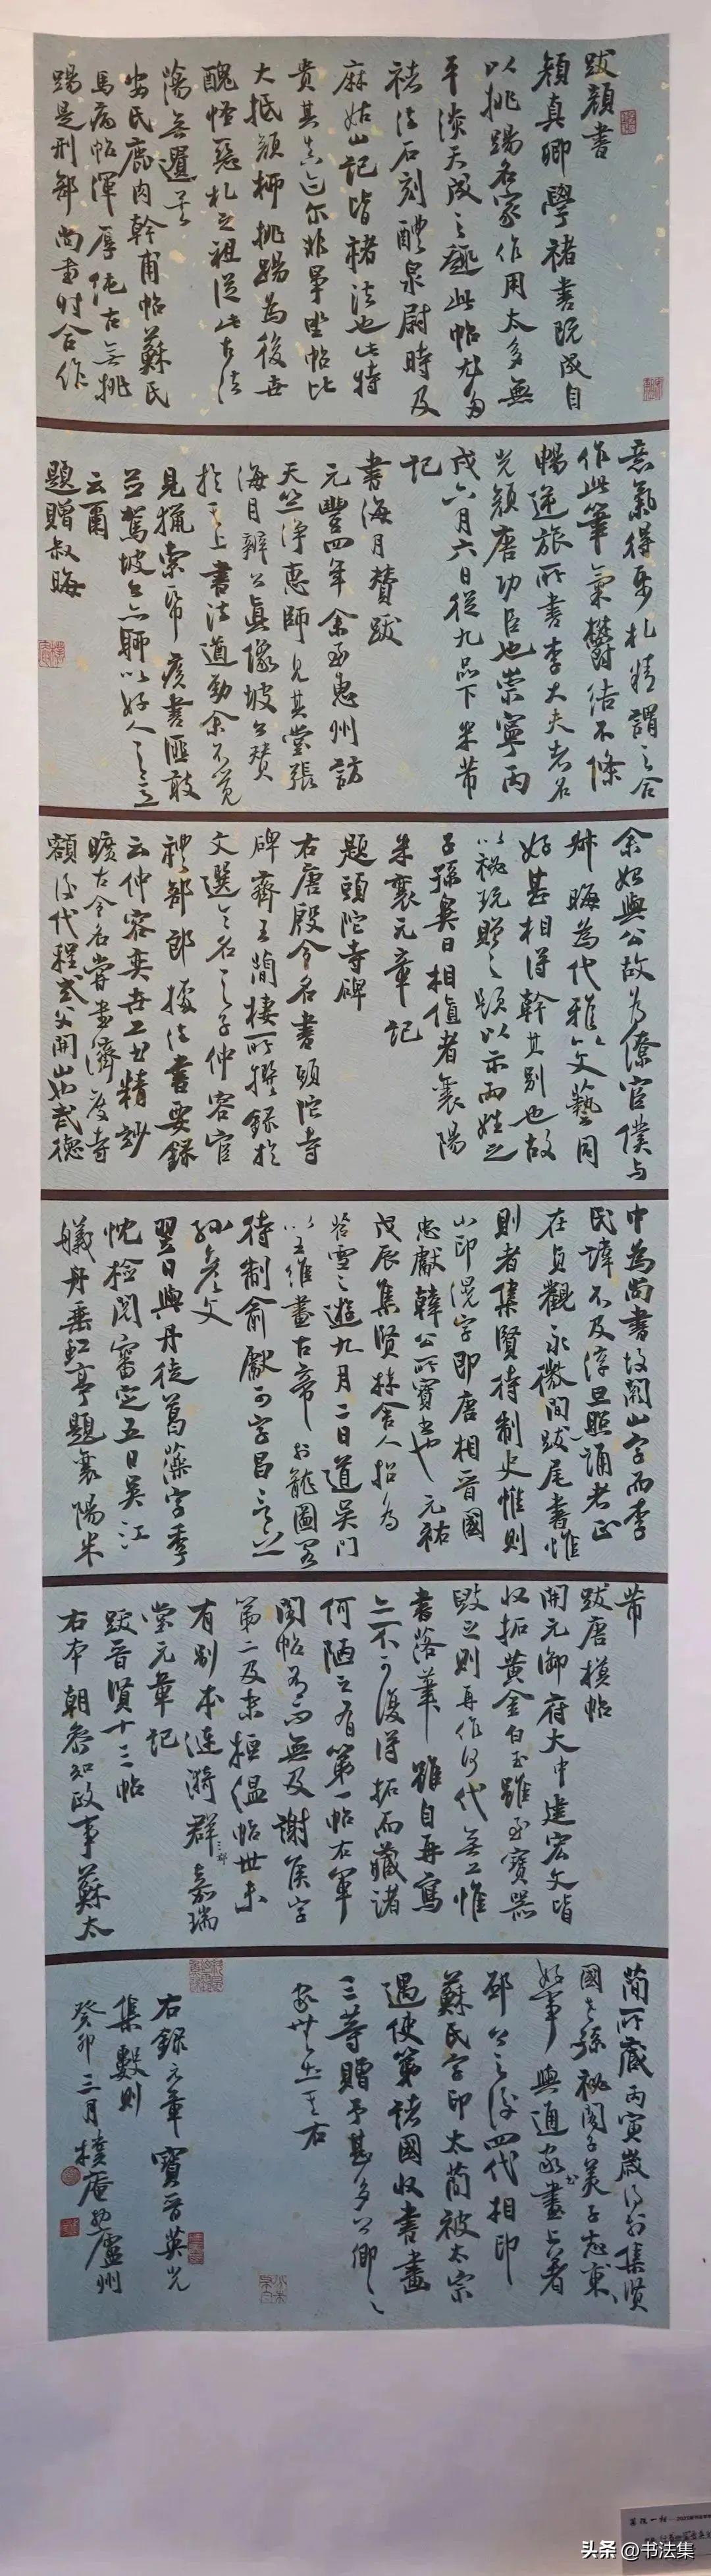 跋顏書
顏真卿學褚書既成自
以挑踢名家作用太多無
平淡天成之趣此帖尤多
褚法石刻醴泉尉時及
麻姑山記皆褚法也此特
貴其真迹尔非爭坐帖比
大抵顏柳挑踢為後世
醜怪惡札之祖從此古法
蕩無遺矣
安氏鹿肉幹甫帖蘇氏
馬病帖渾厚純古無挑
踢是刑部尚書時合作
意氣得
作此筆氣鬱結不條
暢逆旅所書李大夫者名
光顏唐功臣也崇寧丙
戌六月六日從九品下米芾
記
書海月贊跋
元豐四年余至惠州訪
天竺淨惠師見其堂張
海月辯公真像坡公贊
於其上書法遒勁余不覺
見獵索帋疾書匪敢
並駕坡公亦聊以好人之言
云爾
題贈叔晦
余始與公故為僚宦僕与
叔晦為代雅以文藝同
好甚相得於其別也故
以秘玩贈之題以示兩姓之
子孫異日相值者襄陽
米襄元章記
題頭陀寺碑
右唐殷令名書頭陀寺
碑齊王簡棲所撰錄於
文選令名之子仲容官
禮部郎據法書要錄
云仲容奕世工書精妙
曠古令名嘗書濟度寺
額後代程式父開山武德
中為尚書故闕山字而李
民諱不及淳旦照誦者正
在貞觀永徽間跋尾書惟
則者集賢待制史惟則
小印滉字即唐相晉國
忠獻韓公所寶書也元祐
戊辰集賢林舍人招為
苕霅之遊九月二日道吳門
以王維畫古帝於龍圖閣
待制俞獻可字昌言之
孫彥文
翌日與丹徒葛藻字季
忱檢閱審定五日吳江
艤舟垂虹亭題襄陽米
芾
跋唐模帖
開元御府大中建宏文皆
收拓黃金白玉雖至寶器
毀之則再作何代無工惟
書落筆雖自再寫
亦不可復得拓而藏諸
何陋之有第一帖右軍
閣帖有而無及謝矦字
第二及末桓溫帖世未
有別本漣漪郡嘉瑞
堂元章記
跋晉賢十三帖
右本朝參知政事蘇太
簡所藏丙寅歲得於集賢
國老孫祕閣子美子志東
好事與通家書畫尤者
邳公之後四代相印
蘇氏字印太簡被太宗
遇使第諸國收書畫
三等贈予甚多公卿之
家無出其右
右錄元章寶晉英光
集數則
癸卯三月樸庵於廬州
头条 @书法集